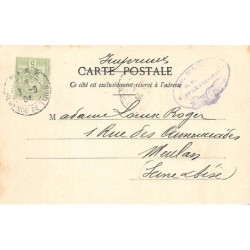 Imprimés
CARTE POSTALE
Ce côté est exclusivement réservé à l'adresse
Madame Louis Roger
1 Rue des Annonciades
Meulan
Seine & Oise